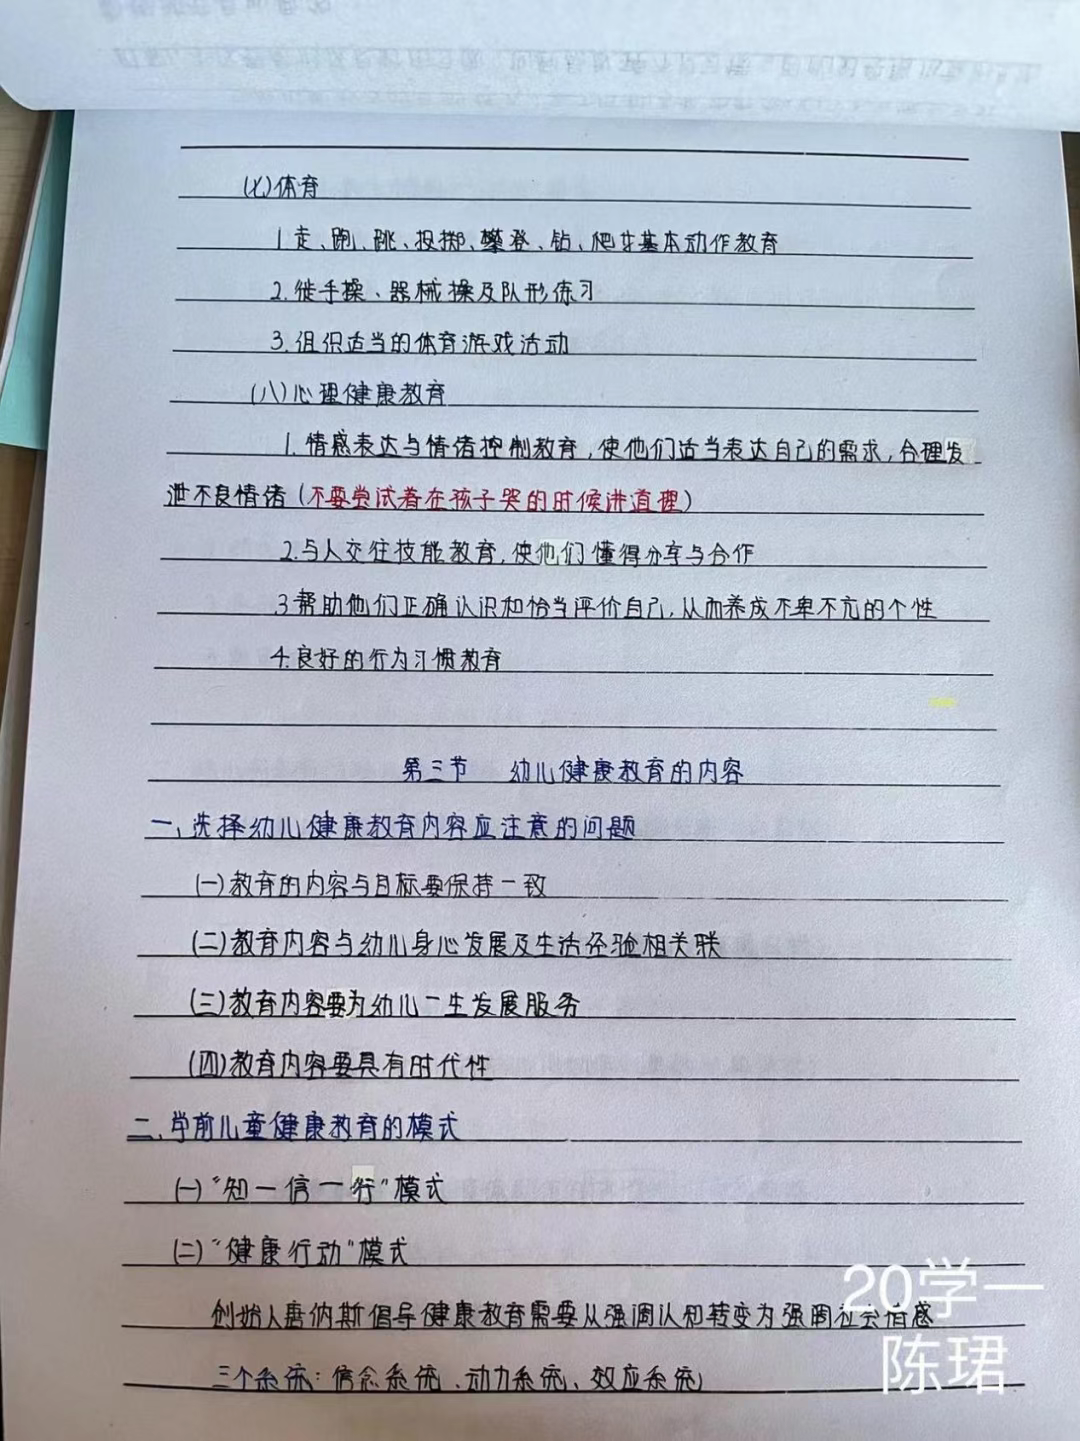 (七)体育
1.走、跑、跳、投掷、攀登、钻、爬等基本动作教育
2.徒手操、器械操及队形练习
3.组织适当的体育游戏活动
(八)心理健康教育
1.情感表达与情绪控制教育,使他们适当表达自己的需求,合理发
泄不良情绪(不要尝试着在孩子哭的时候讲道理)
2.与人交往技能教育,使他们懂得分享与合作
3帮助他们正确认识和恰当评价自己,从而养成不卑不亢的个性
4.良好的行为习惯教育
第三节 幼儿健康教育的内容
一、选择幼儿健康教育内容应注意的问题
(一)教育的内容与目标要保持一致
(二)教育内容与幼儿身心发展及生活经验相关联
(三)教育内容要为幼儿一生发展服务
(四)教育内容要具有时代性
二、学前儿童健康教育的模式
(一)“知一信一行”模式
(二)“健康行动”模式
创始人唐纳斯倡导健康教育需要从强调认知转变为强调社会情感
三个系统:信念系统、动力系统、效应系统
20学一
陈珺